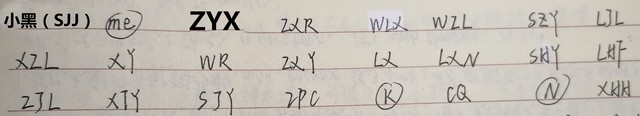 小黑（SJJ） me ZYX ZXR WLX WZL SZY LJL
XZL XY WR ZXY LX LXN SHY LHF
ZJL XJY SJY ZPC K CQ N XHH